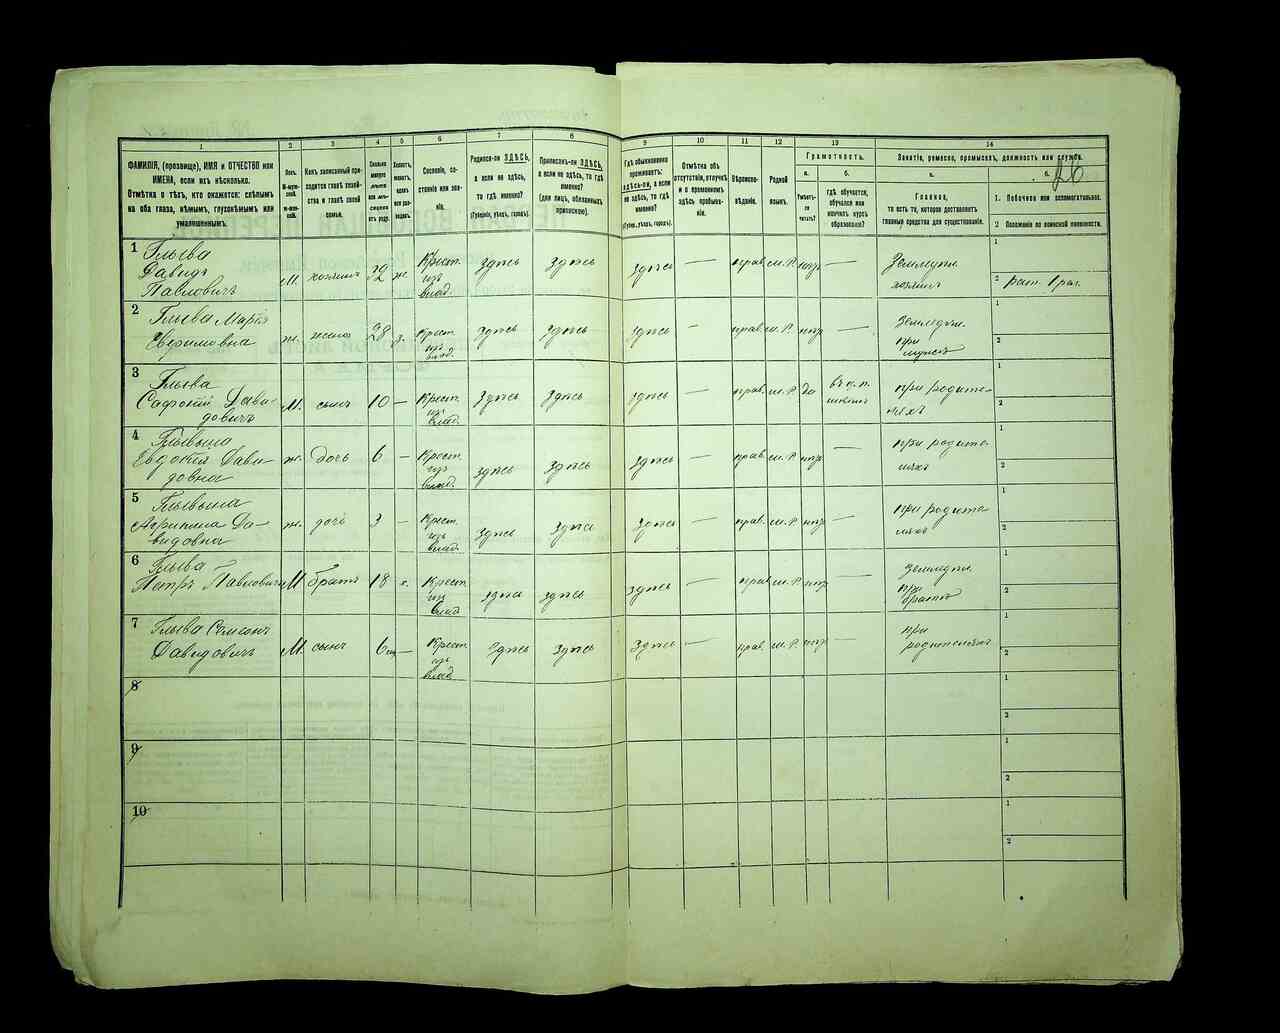 26
1 2 3 4 5 6 7 8 9 10 11 12 13 14
ФАМИЛІЯ, (прозвище), ИМЯ и ОТЧЕСТВО или
ИМЕНА, если ихъ нѣсколько.
Отмѣтка о тѣхъ, кто окажется: слѣпымъ
на оба глаза, нѣмымъ, глухонѣмымъ или
умалишеннымъ.
Полъ
М-муж-
ской.
Ж-жен-
скій.
Какъ записанный при-
ходится главѣ хозяй-
ства и главѣ своей
семьи.
Сколько
минуло
лѣтъ
или мѣ-
сяцевъ
отъ роду.
Холостъ,
женатъ,
вдовъ
или раз-
веденъ.
Сословіе, со-
стояніе или зва-
ніе.
Родился-ли ЗДѢСЬ,
а если не здѣсь,
то гдѣ именно?
(Губернія, уѣздъ, городъ).
Приписанъ-ли ЗДѢСЬ,
а если не здѣсь, то гдѣ
именно?
(для лицъ, обязанныхъ
припискою).
Гдѣ обыкновенно
проживаетъ:
здѣсь-ли, а если
не здѣсь, то гдѣ
именно?
(Губерн., уѣздъ, городъ).
Отмѣтка объ
отсутствіи, отлучкѣ
и о временномъ
здѣсь пребыва-
ніи.
Вѣроиспо-
вѣданіе.
Родной
языкъ.
Грамотность.
а. б.
Умѣетъ-
ли
читать?
гдѣ обучается,
обучался или
кончилъ курсъ
образованія?
Занятіе, ремесло, промыселъ, должность или служба.
а. б.
Главное,
то есть то, которое доставляетъ
главныя средства для существованія.
1. Побочное или вспомогательное.
2 Положеніе по воинской повинности.
1 Глыва
Давидъ
Павловичъ
М. хозяинъ 32 ж Крест.
изъ
влад. здѣсь здѣсь здѣсь — прав. м. Р. нѣтъ — Земледѣл.
хозяинъ
1
2
2 Глыва Марѳа
Ефримовна
ж. жена 28 з. Крест.
изъ
влад. здѣсь здѣсь здѣсь — прав. м. Р. нѣтъ — Земледѣл.
при
мужѣ
1
2
3 Глыва
Софроній Дави-
довичъ
М. сынъ 10 — Крест.
изъ
влад. здѣсь здѣсь здѣсь — прав. м. Р. да въ ц. п.
школѣ при родите-
ляхъ
1
2
4 Глывына
Евдокія Дави-
довна
ж. дочь 6 — Крест.
изъ
влад. здѣсь здѣсь здѣсь — прав. м. Р. нѣтъ — при родите-
ляхъ
1
2
5 Глывына
Агрипина Да-
видовна
ж. дочь 3 — Крест.
изъ
влад. здѣсь здѣсь здѣсь — прав. м. Р. нѣтъ — при родите-
ляхъ
1
2
6 Глыва
Петръ Павловичъ
М братъ 18 х. Крест.
из
влад здѣсь здѣсь здѣсь — прав. м. Р. нѣтъ — Земледѣл.
при
братѣ
1
2
7 Глыва Самсонъ
Давидовичъ
М. сынъ 6 — Крест.
изъ
влад здѣсь здѣсь здѣсь — прав. м. Р. нѣтъ — при
родителяхъ
1
2
8
1
2
9
1
2
10
1
2